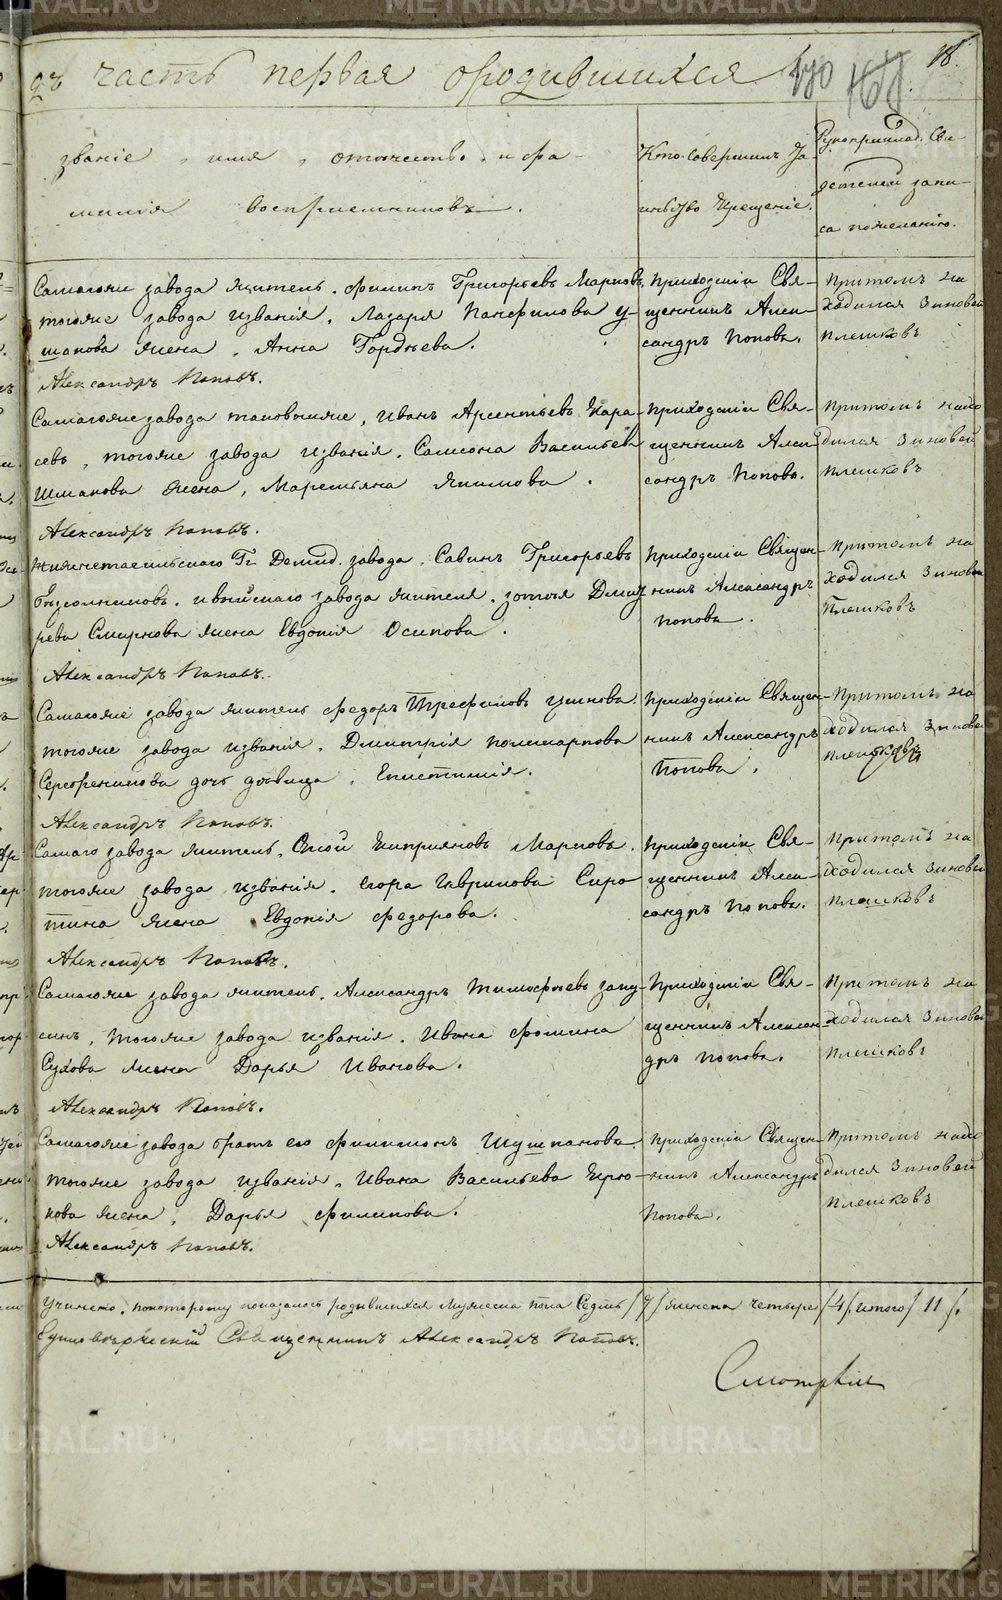 METRIKI.GASO-URAL.RU
часть первая ородившихся
170
18.
званіе, имя, отчество, и фа-
милія воспріемниковъ.
Кто совершилъ Та-
инство Крещеніе.
Рукоприклад. Сви-
детелей запи-
са пожеланію.
Самагоже завода житель. Филипъ Григорьевъ Марковъ,
тогоже завода изванія, Лазаря Панфилова У-
шакова жена, Анна Гордѣева.
Александръ Поповъ.
Приходскій Свя-
щенникъ Алек-
сандръ Поповъ.
Притомъ на
ходился Зиновей
Плешковъ
Самагоже завода таковыйже, Иванъ Арсентьевъ Кара-
севъ, тогоже завода изванія. Самсона Васильева
Шмакова жена, Маремьяна Якимова.
Александръ Поповъ.
Приходскій Свя-
щенникъ Алек-
сандръ Поповъ.
Притомъ нахо
дился Зиновей
Плешковъ
Нижнетагильскаго Гг. Демид. завода, Савинъ Григорьевъ
завода жителя, Зотея Дмит
рева Смирнова жена Евдокія Осипова.
Александръ Поповъ.
Приходскій Священ-
никъ Александръ
Поповъ.
Притомъ на
ходился Зиновей
Плешковъ
Самагоже завода житель Федоръ Трефиловъ
тогоже завода изванія, Дмитрія Поликарпова
Серебреникова дочь девица, Епистимія.
Александръ Поповъ.
Приходскій Священ-
никъ Александръ
Поповъ.
Притомъ на
ходился Зиновей
Плешковъ
Самаго завода житель, Сысой Кипріяновъ Марковъ.
тогоже завода изванія. Егора Гаврилова Сиро
тина жена Евдокія Федорова.
Александръ Поповъ.
Приходскій Свя-
щенникъ Алек-
сандръ Поповъ.
Притомъ на
ходился Зиновей
Плешковъ
Самагоже завода житель, Александръ Тимофеевъ
синъ, тогоже завода изванія. Ивана Фомина
Сухова жена Дарья Иванова.
Александръ Поповъ.
Приходскій Свя-
щенникъ Алексан-
дръ Поповъ.
Притомъ на
ходился Зиновей
Плешковъ
Самагоже завода братъ его Филимонъ Шушпановъ
тогоже завода изванія, Ивана Васильева Крю-
кова жена, Дарья Филипова.
Александръ Поповъ.
Приходскій Священ-
никъ Александръ
Поповъ.
Притомъ нахо
дился Зиновей
Плешковъ
Учинено, покоторому показалось родившихся мужеска пола Седмь /7/ женска четыре /4/. итого /11/.
Единоверческій Священникъ Александръ Поповъ.
METRIKI.GASO-URAL.RU
METRIKI.GASO-URAL.RU